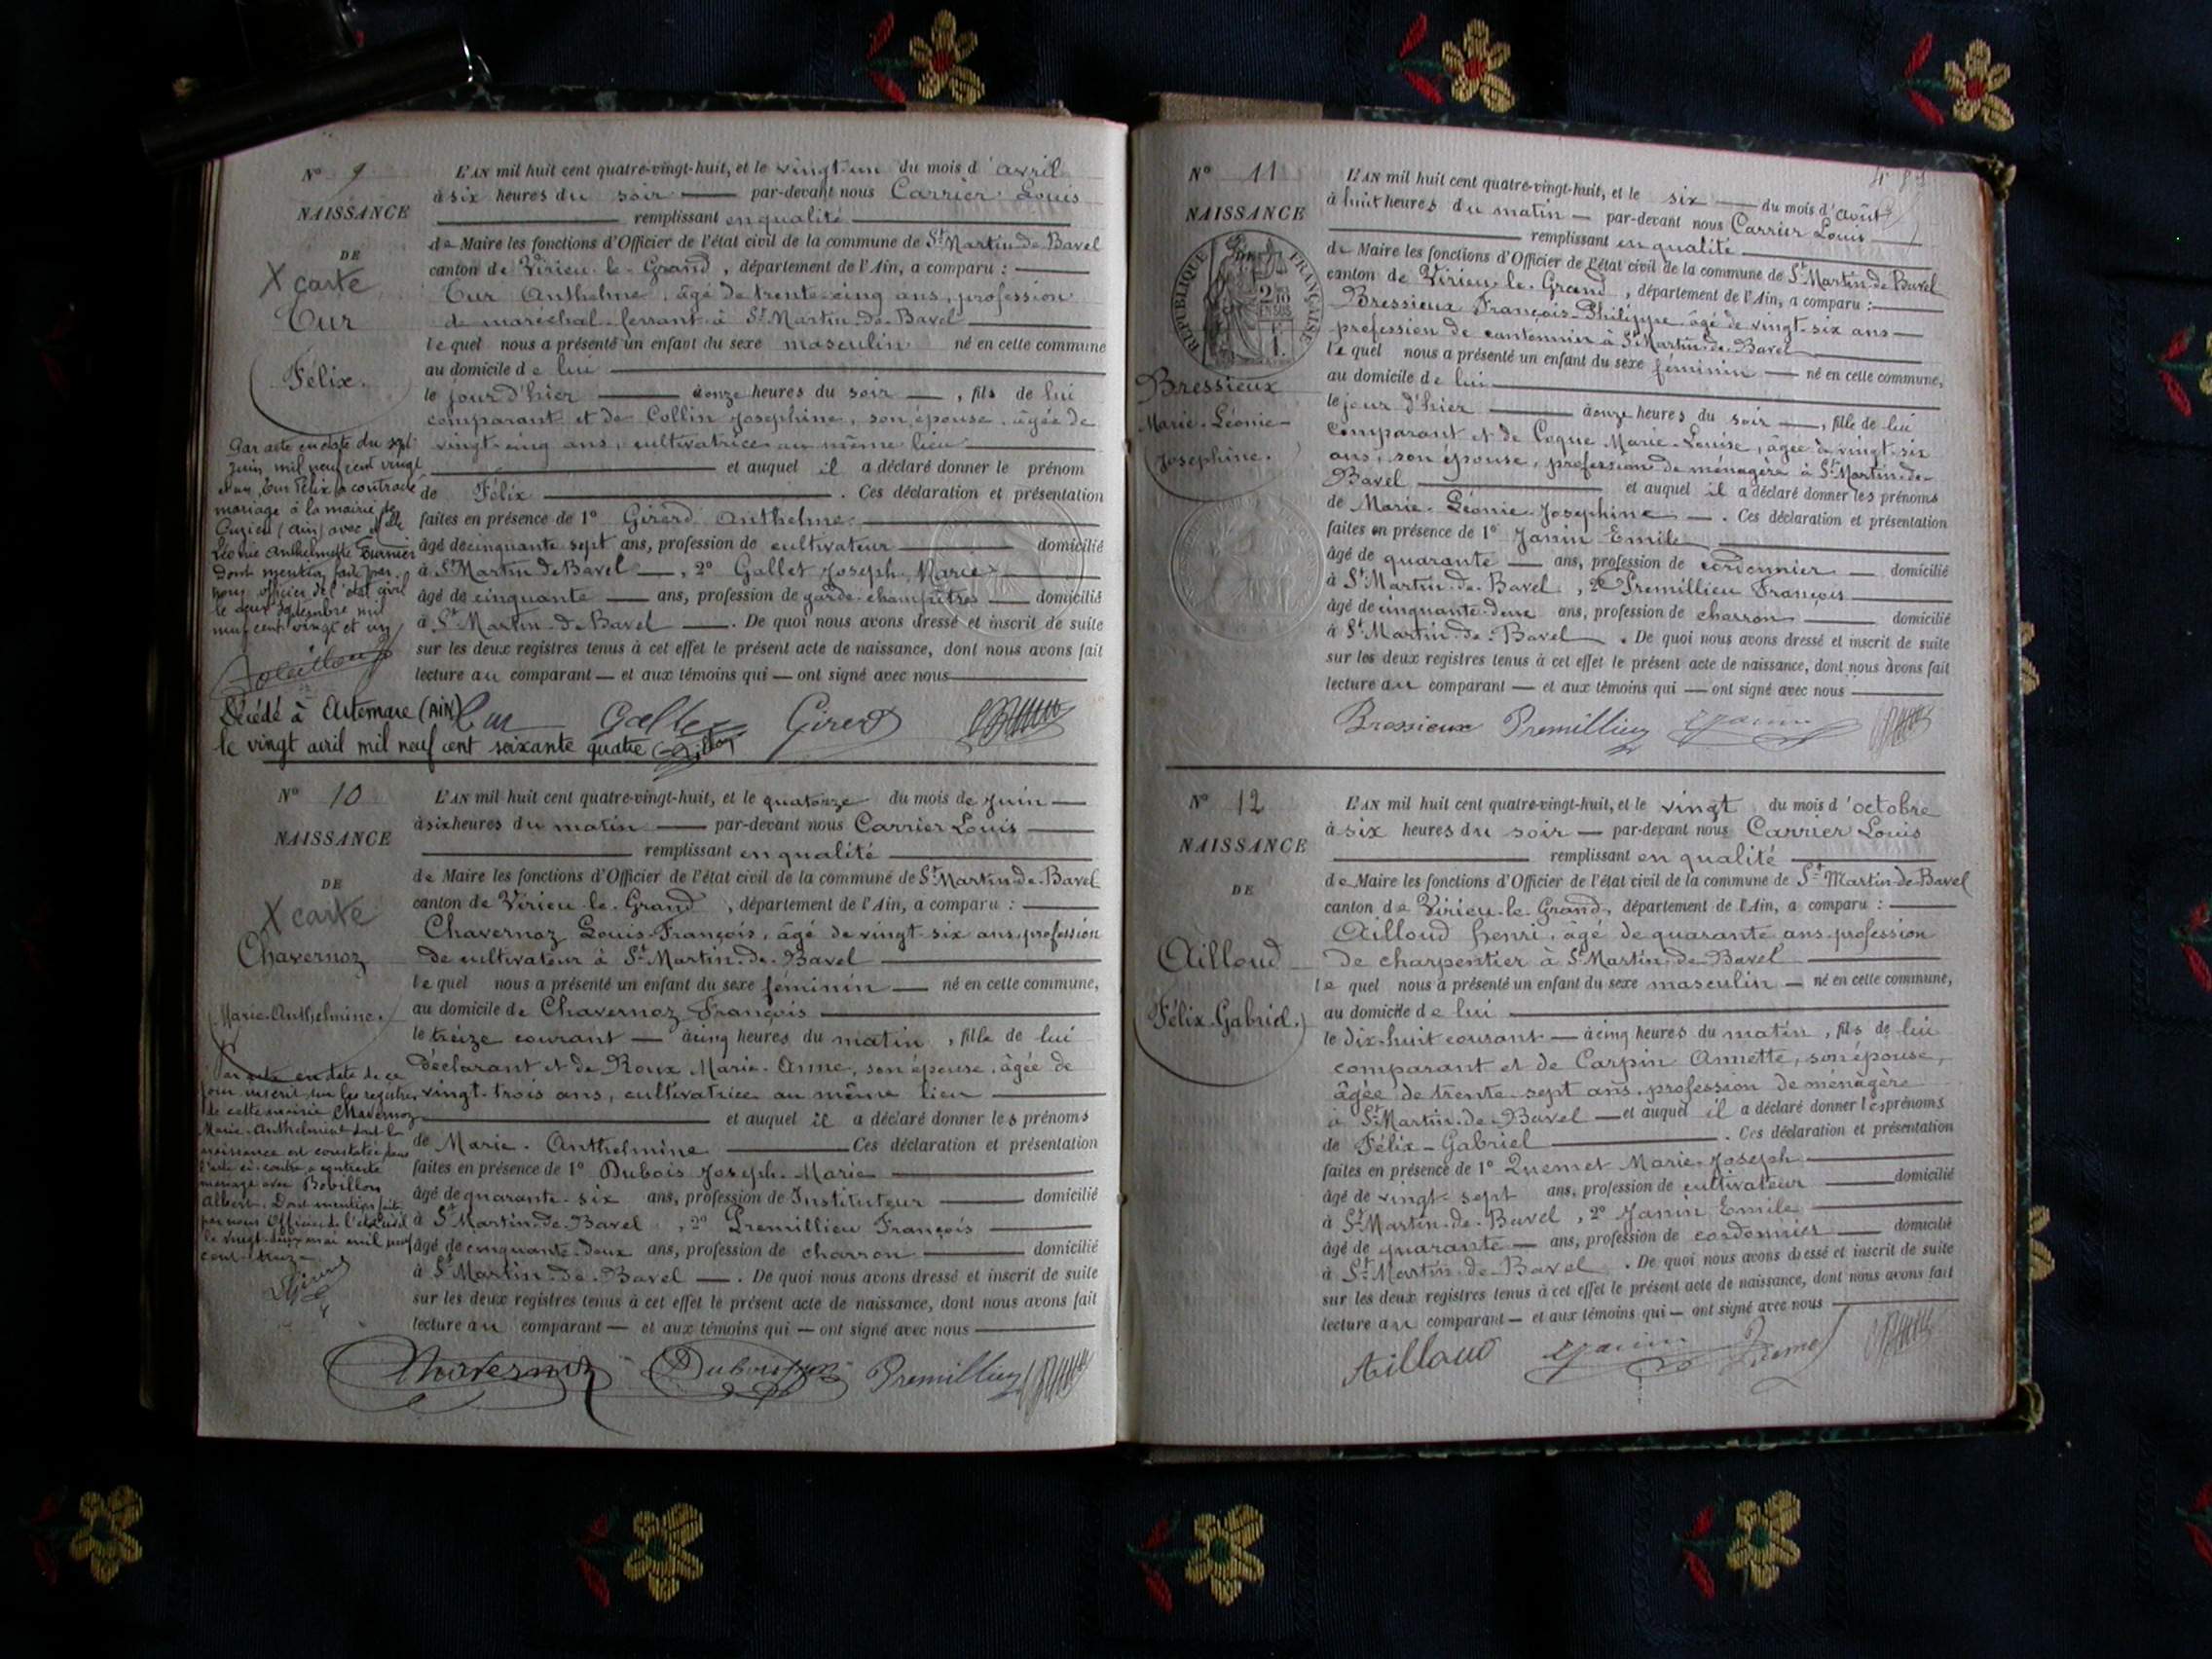 N° 9
NAISSANCE
DE
X carte
Tur
Félix.
Par acte en date du sept
Juin mil neuf cent vingt
et un, Tur Félix a contracté
mariage à la mairie de
Cuzieu (Ain) avec
Léonie Anthelmette
dont mention faite par
nous officier de l'état civil
le deux septembre mil
neuf cent vingt et un
L'AN mil huit cent quatre-vingt-huit, et le vingt-un du mois d'avril
à six heures du soir — par-devant nous Carrier Louis
remplissant en qualité
de Maire les fonctions d'Officier de l'état civil de la commune de St Martin-de-Bavel
canton de Virieu-le-Grand, département de l'Ain, a comparu :
Tur Anthelme, âgé de trente-cinq ans, profession
de maréchal-ferrant à St Martin-de-Bavel
lequel nous a présenté un enfant du sexe masculin né en cette commune
au domicile de lui
le jour d'hier — à onze heures du soir —, fils de lui
comparant et de Collin Josephine, son épouse, âgée de
vingt-cinq ans, cultivatrice au même lieu
et auquel il a déclaré donner le prénom
de Félix — . Ces déclaration et présentation
faites en présence de 1° Girerd Anthelme
âgé de cinquante sept ans, profession de cultivateur — domicilié
à St Martin de Bavel —, 2° Gallet Joseph Marie
âgé de cinquante — ans, profession de garde-champêtre — domicilié
à St Martin-de-Bavel — . De quoi nous avons dressé et inscrit de suite
sur les deux registres tenus à cet effet le présent acte de naissance, dont nous avons fait
lecture au comparant — et aux témoins qui — ont signé avec nous
Tur Gallet Girerd
Décédé à Artemare (AIN)
le vingt avril mil neuf cent soixante quatre
N° 10
NAISSANCE
DE
X carte
Chavernoz
Marie-Anthelmine.
Par acte en date de ce
jour inscrit sur les registres
de cette mairie Chavernoz
Marie-Anthelmine dont la
naissance est constatée dans
l'acte ci-contre a contracté
mariage avec Bovillon
Albert. Dont mention faite
par nous Officier de l'état civil
le vingt-deux mai mil neuf
cent treize
L'AN mil huit cent quatre-vingt-huit, et le quatorze du mois de Juin —
à six heures du matin — par-devant nous Carrier Louis
remplissant en qualité
de Maire les fonctions d'Officier de l'état civil de la commune de St Martin-de-Bavel
canton de Virieu-le-Grand, département de l'Ain, a comparu :
Chavernoz Louis-François, âgé de vingt-six ans, profession
de cultivateur à St Martin-de-Bavel
lequel nous a présenté un enfant du sexe féminin — né en cette commune,
au domicile de Chavernoz François
le treize courant — à cinq heures du matin, fille de lui
déclarant et de Roux Marie-Anne, son épouse, âgée de
vingt-trois ans, cultivatrice au même lieu
et auquel il a déclaré donner les prénoms
de Marie-Anthelmine — Ces déclaration et présentation
faites en présence de 1° Dubois Joseph-Marie
âgé de quarante-six ans, profession de Instituteur — domicilié
à St Martin-de-Bavel, 2° Premillieu François
âgé de cinquante-deux ans, profession de charron — domicilié
à St Martin-de-Bavel — . De quoi nous avons dressé et inscrit de suite
sur les deux registres tenus à cet effet le présent acte de naissance, dont nous avons fait
lecture au comparant — et aux témoins qui — ont signé avec nous
Chavernoz Dubois Premillieu
N° 11
NAISSANCE
RÉPUBLIQUE FRANÇAISE
Bressieux
Marie-Léonie-
Josephine.
L'AN mil huit cent quatre-vingt-huit, et le six — du mois d'août
à huit heures du matin — par-devant nous Carrier Louis
remplissant en qualité
de Maire les fonctions d'Officier de l'état civil de la commune de St Martin-de-Bavel
canton de Virieu-le-Grand, département de l'Ain, a comparu :
Bressieux François-Philippe âgé de vingt-six ans —
profession de cantonnier à St Martin-de-Bavel
lequel nous a présenté un enfant du sexe féminin — né en cette commune,
au domicile de lui
le jour d'hier — à onze heures du soir —, fille de lui
comparant et de Coque Marie-Louise, âgée de vingt-six
ans, son épouse, profession de ménagère à St Martin-de-
Bavel — et auquel il a déclaré donner les prénoms
de Marie-Léonie-Josephine — . Ces déclaration et présentation
faites en présence de 1° Janin Emile
âgé de quarante — ans, profession de cordonnier — domicilié
à St Martin-de-Bavel, 2° Premillieu François
âgé de cinquante-deux ans, profession de charron — domicilié
à St Martin-de-Bavel — . De quoi nous avons dressé et inscrit de suite
sur les deux registres tenus à cet effet le présent acte de naissance, dont nous avons fait
lecture au comparant — et aux témoins qui — ont signé avec nous
Bressieux Premillieu Janin
N° 12
NAISSANCE
DE
Ailloud
Félix-Gabriel.
L'AN mil huit cent quatre-vingt-huit, et le vingt du mois d'octobre
à six heures du soir — par-devant nous Carrier Louis
remplissant en qualité
de Maire les fonctions d'Officier de l'état civil de la commune de St Martin-de-Bavel
canton de Virieu-le-Grand, département de l'Ain, a comparu :
Ailloud henri, agé de quarante ans profession
de charpentier à St Martin-de-Bavel
lequel nous a présenté un enfant du sexe masculin — né en cette commune,
au domicile de lui
le dix-huit courant — à cinq heures du matin, fils de lui
comparant et de Carpin Annette, son épouse,
âgée de trente-sept ans, profession de ménagère
à St Martin-de-Bavel — et auquel il a déclaré donner les prénoms
de Félix-Gabriel — . Ces déclaration et présentation
faites en présence de 1° Quemet Marie-Joseph
âgé de vingt-sept ans, profession de cultivateur — domicilié
à St Martin-de-Bavel, 2° Janin Emile
âgé de quarante — ans, profession de cordonnier — domicilié
à St Martin de Bavel . De quoi nous avons dressé et inscrit de suite
sur les deux registres tenus à cet effet le présent acte de naissance, dont nous avons fait
lecture au comparant — et aux témoins qui — ont signé avec nous
Ailloud Janin Quemet